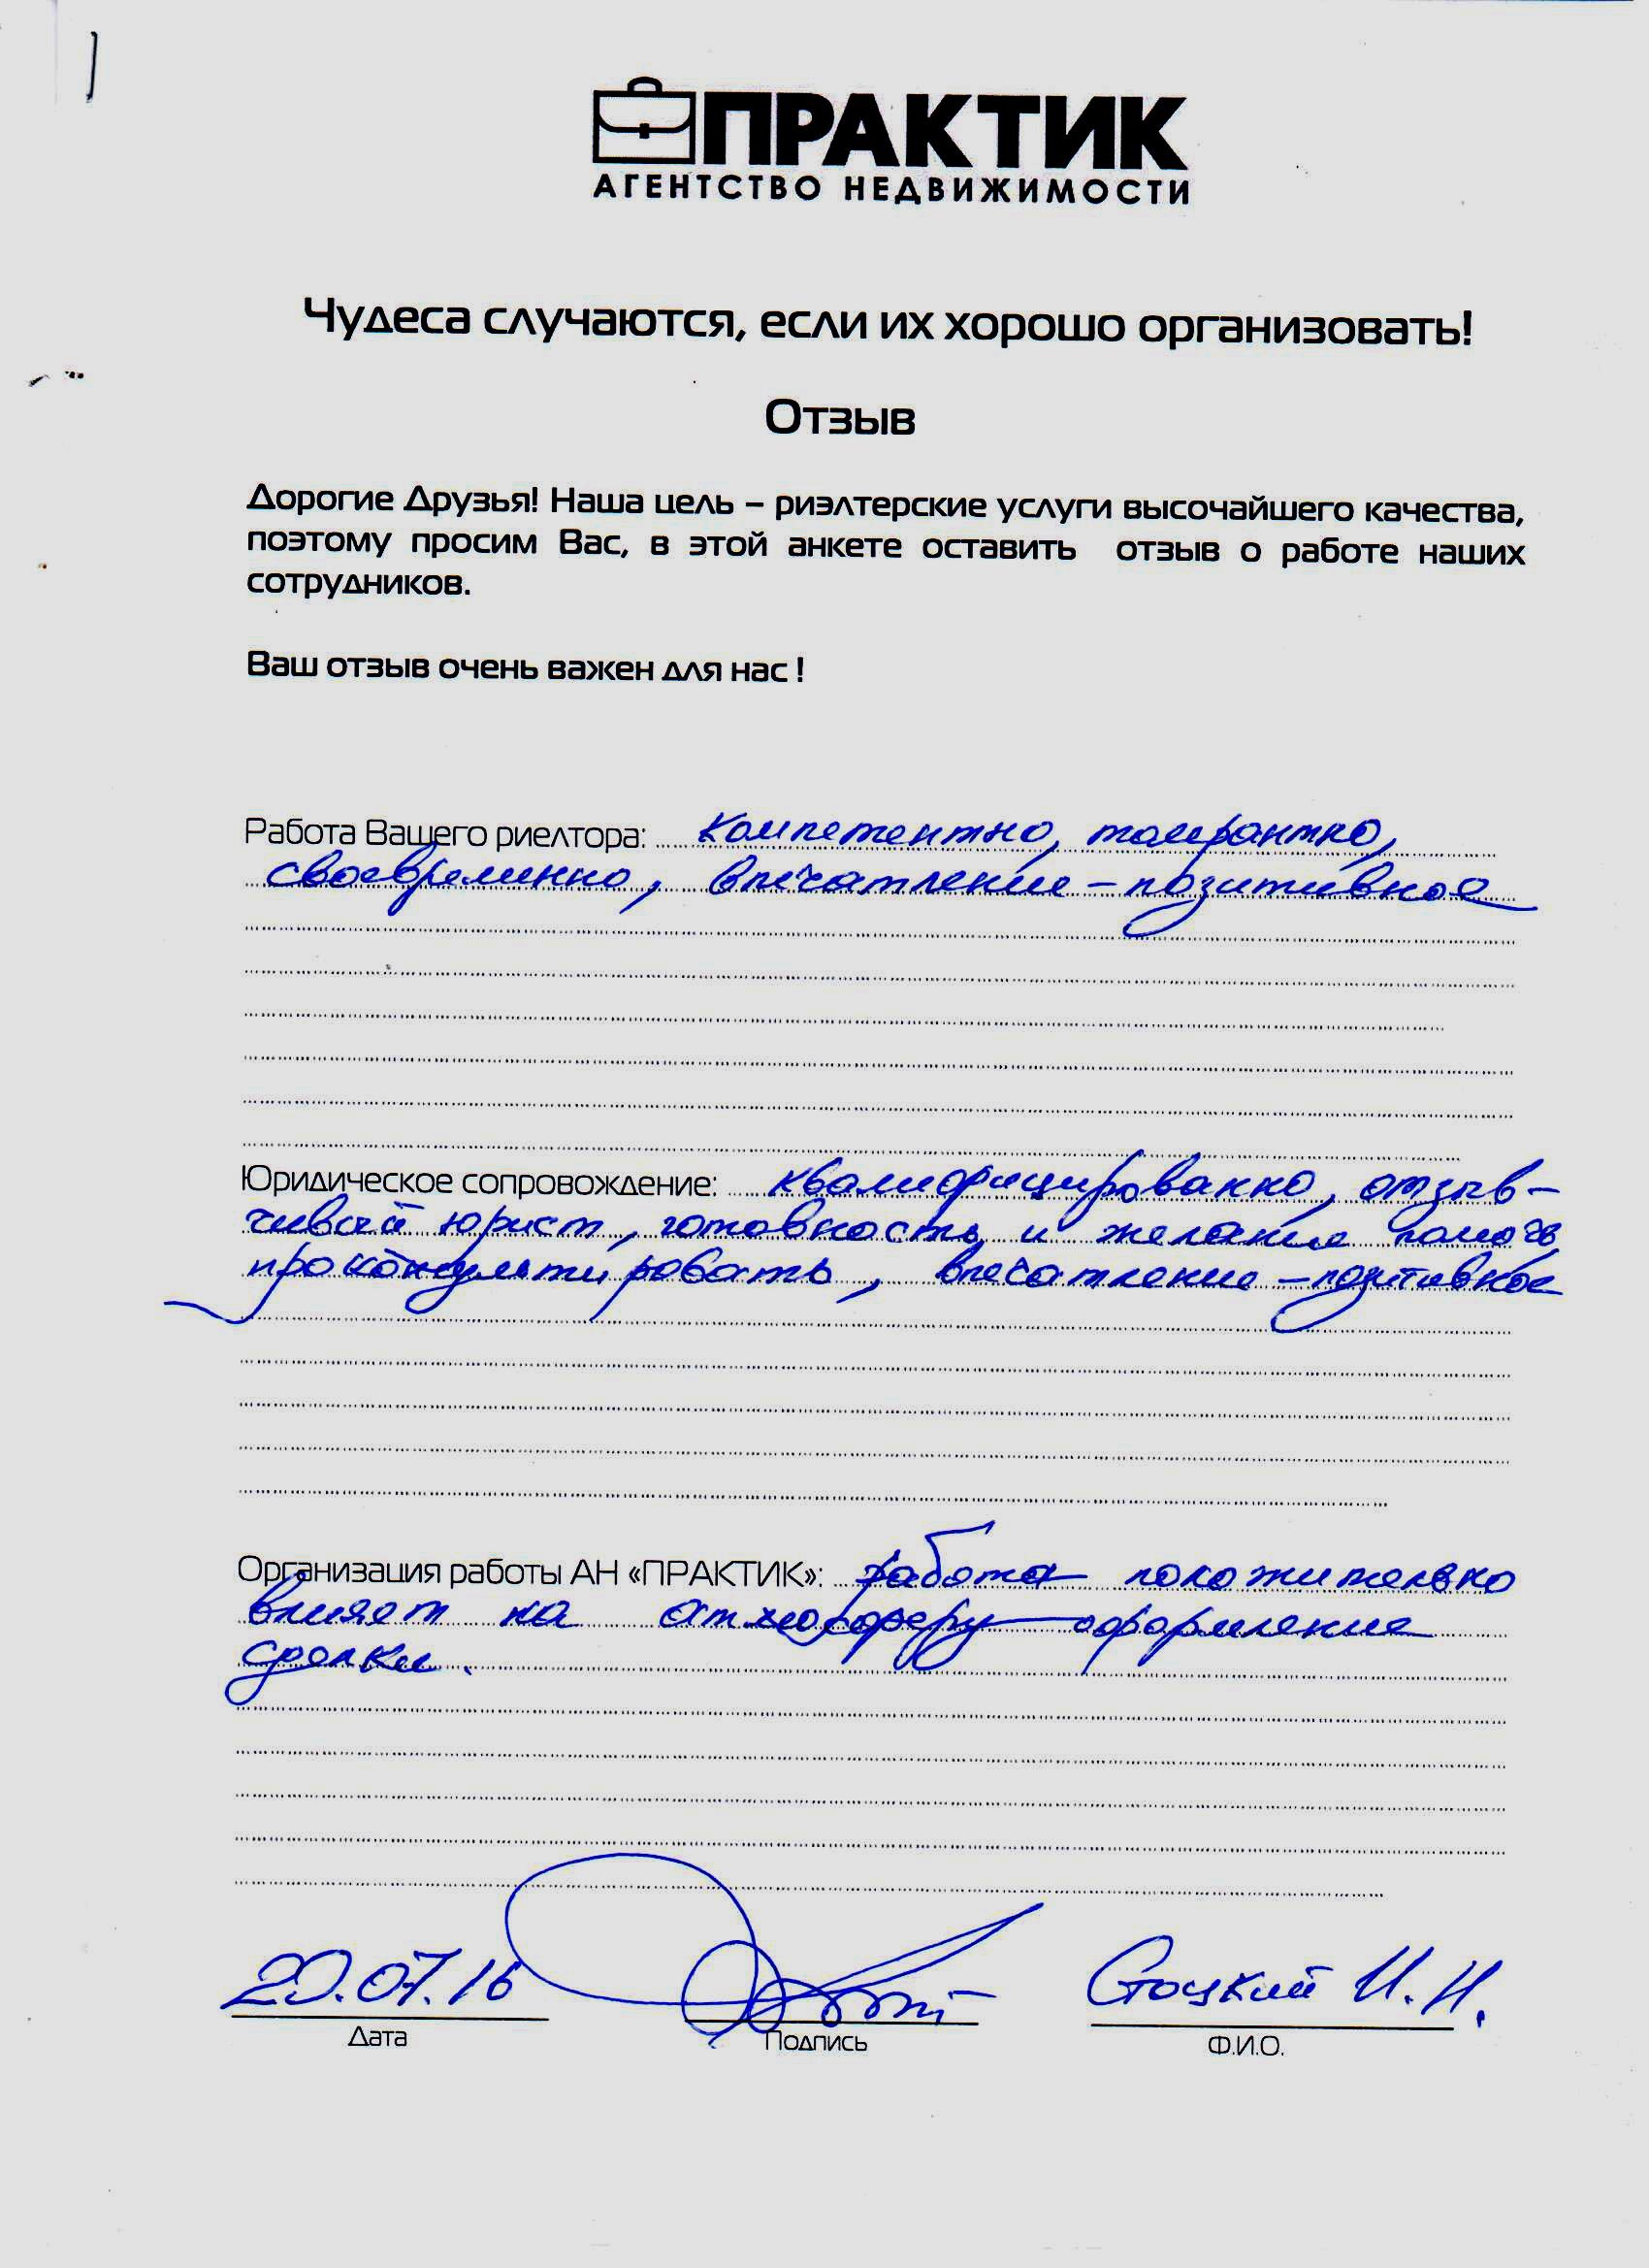 ПРАКТИК
АГЕНТСТВО НЕДВИЖИМОСТИ
Чудеса случаются, если их хорошо организовать!
Отзыв
Дорогие Друзья! Наша цель – риэлтерские услуги высочайшего качества,
поэтому просим Вас, в этой анкете оставить отзыв о работе наших
сотрудников.
Ваш отзыв очень важен для нас !
Работа Вашего риелтора: компетентно, толерантно,
своевременно, впечатление – позитивное
Юридическое сопровождение: квалифицированно, отзыв-
чивый юрист, готовность и желание помочь
проконсультировать, впечатление – позитивное
Организация работы АН «ПРАКТИК»: работа положительно
влияет на атмосферу оформление
сделки.
20.07.16 Стоцкий И. И.
Дата Подпись Ф.И.О.